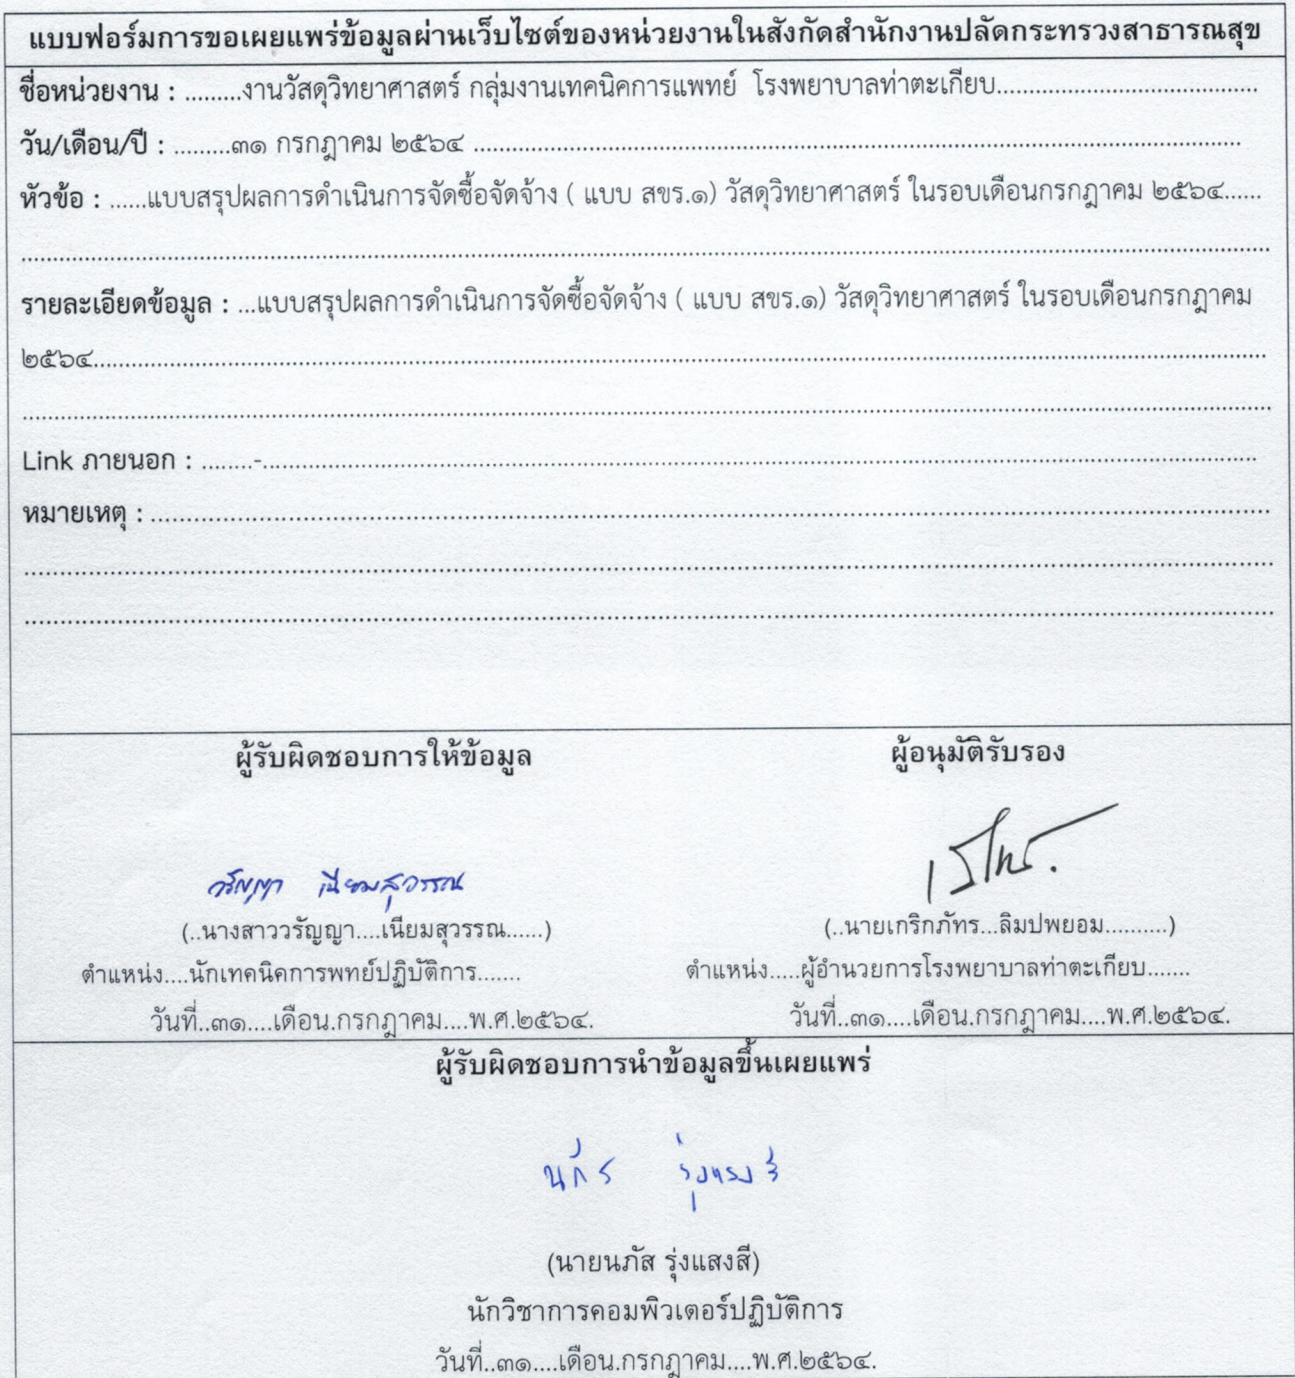 แบบฟอร์มการขอเผยแพร่ข้อมูลผ่านเว็บไซต์ของหน่วยงานในสังกัดสำนักงานปลัดกระทรวงสาธารณสุข
ชื่อหน่วยงาน : .........งานวัสดุวิทยาศาสตร์ กลุ่มงานเทคนิคการแพทย์ โรงพยาบาลท่าตะเกียบ.......................................
วัน/เดือน/ปี : .........๓๑ กรกฎาคม ๒๕๖๔ ....................................................................................
หัวข้อ : ......แบบสรุปผลการดำเนินการจัดซื้อจัดจ้าง ( แบบ สขร.๑) วัสดุวิทยาศาสตร์ ในรอบเดือนกรกฎาคม ๒๕๖๔......
รายละเอียดข้อมูล : ...แบบสรุปผลการดำเนินการจัดซื้อจัดจ้าง ( แบบ สขร.๑) วัสดุวิทยาศาสตร์ ในรอบเดือนกรกฎาคม
๒๕๖๔....................................................................................
Link ภายนอก : ........-....................................................................................
หมายเหตุ : ....................................................................................
ผู้รับผิดชอบการให้ข้อมูล
ผู้อนุมัติรับรอง
วรัญญา เนียมสุวรรณ
(..นางสาววรัญญา....เนียมสุวรรณ......)
(..นายเกริกภัทร...ลิมปพยอม..........)
ตำแหน่ง....นักเทคนิคการพทย์ปฏิบัติการ.......
ตำแหน่ง.....ผู้อำนวยการโรงพยาบาลท่าตะเกียบ.......
วันที่..๓๑....เดือน.กรกฎาคม....พ.ศ.๒๕๖๔.
วันที่..๓๑....เดือน.กรกฎาคม....พ.ศ.๒๕๖๔.
ผู้รับผิดชอบการนำข้อมูลขึ้นเผยแพร่
นภัส รุ่งแสงสี
(นายนภัส รุ่งแสงสี)
นักวิชาการคอมพิวเตอร์ปฏิบัติการ
วันที่..๓๑....เดือน.กรกฎาคม....พ.ศ.๒๕๖๔.